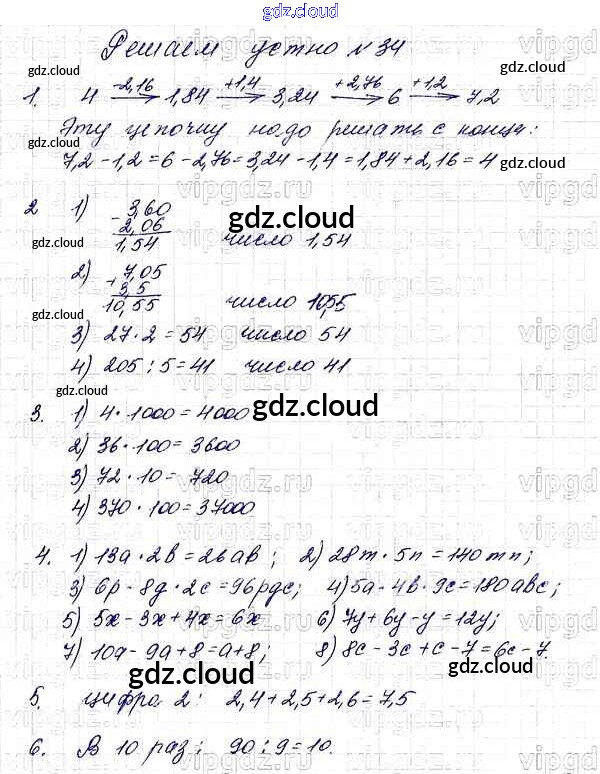 gdz.cloud
Решаем устно №34
gdz.cloud
1. 4 —-2,16→ 1,84 —+1,4→ 3,24 —+2,76→ 6 —+1,2→ 7,2
gdz.cloud
Эту цепочку надо решать с конца:
7,2 - 1,2 = 6 - 2,76 = 3,24 - 1,4 = 1,84 + 2,16 = 4
gdz.cloud
2 1) - 3,60
2,06
1,54 число 1,54
gdz.cloud gdz.cloud
2) + 7,05
3,5
10,55 число 10,55
gdz.cloud
3) 27 · 2 = 54 число 54
4) 205 : 5 = 41 число 41
gdz.cloud
3. 1) 4 · 1000 = 4000 gdz.cloud
2) 36 · 100 = 3600
3) 72 · 10 = 720
4) 370 · 100 = 37000
4. 1) 13a · 2b = 26ab ; 2) 28m · 5n = 140mn;
3) 6p · 8g · 2c = 96pgc; 4) 5a · 4b · 9c = 180abc;
5) 5x - 3x + 4x = 6x 6) 7y + 6y - y = 12y;
7) 10a - 9a + 8 = a + 8; 8) 8c - 3c + c - 7 = 6c - 7.
gdz.cloud
5. цифра 2: 2,4 + 2,5 + 2,6 = 7,5
gdz.cloud
6. В 10 раз; 90 : 9 = 10.
gdz.cloud
vipgdz.ru